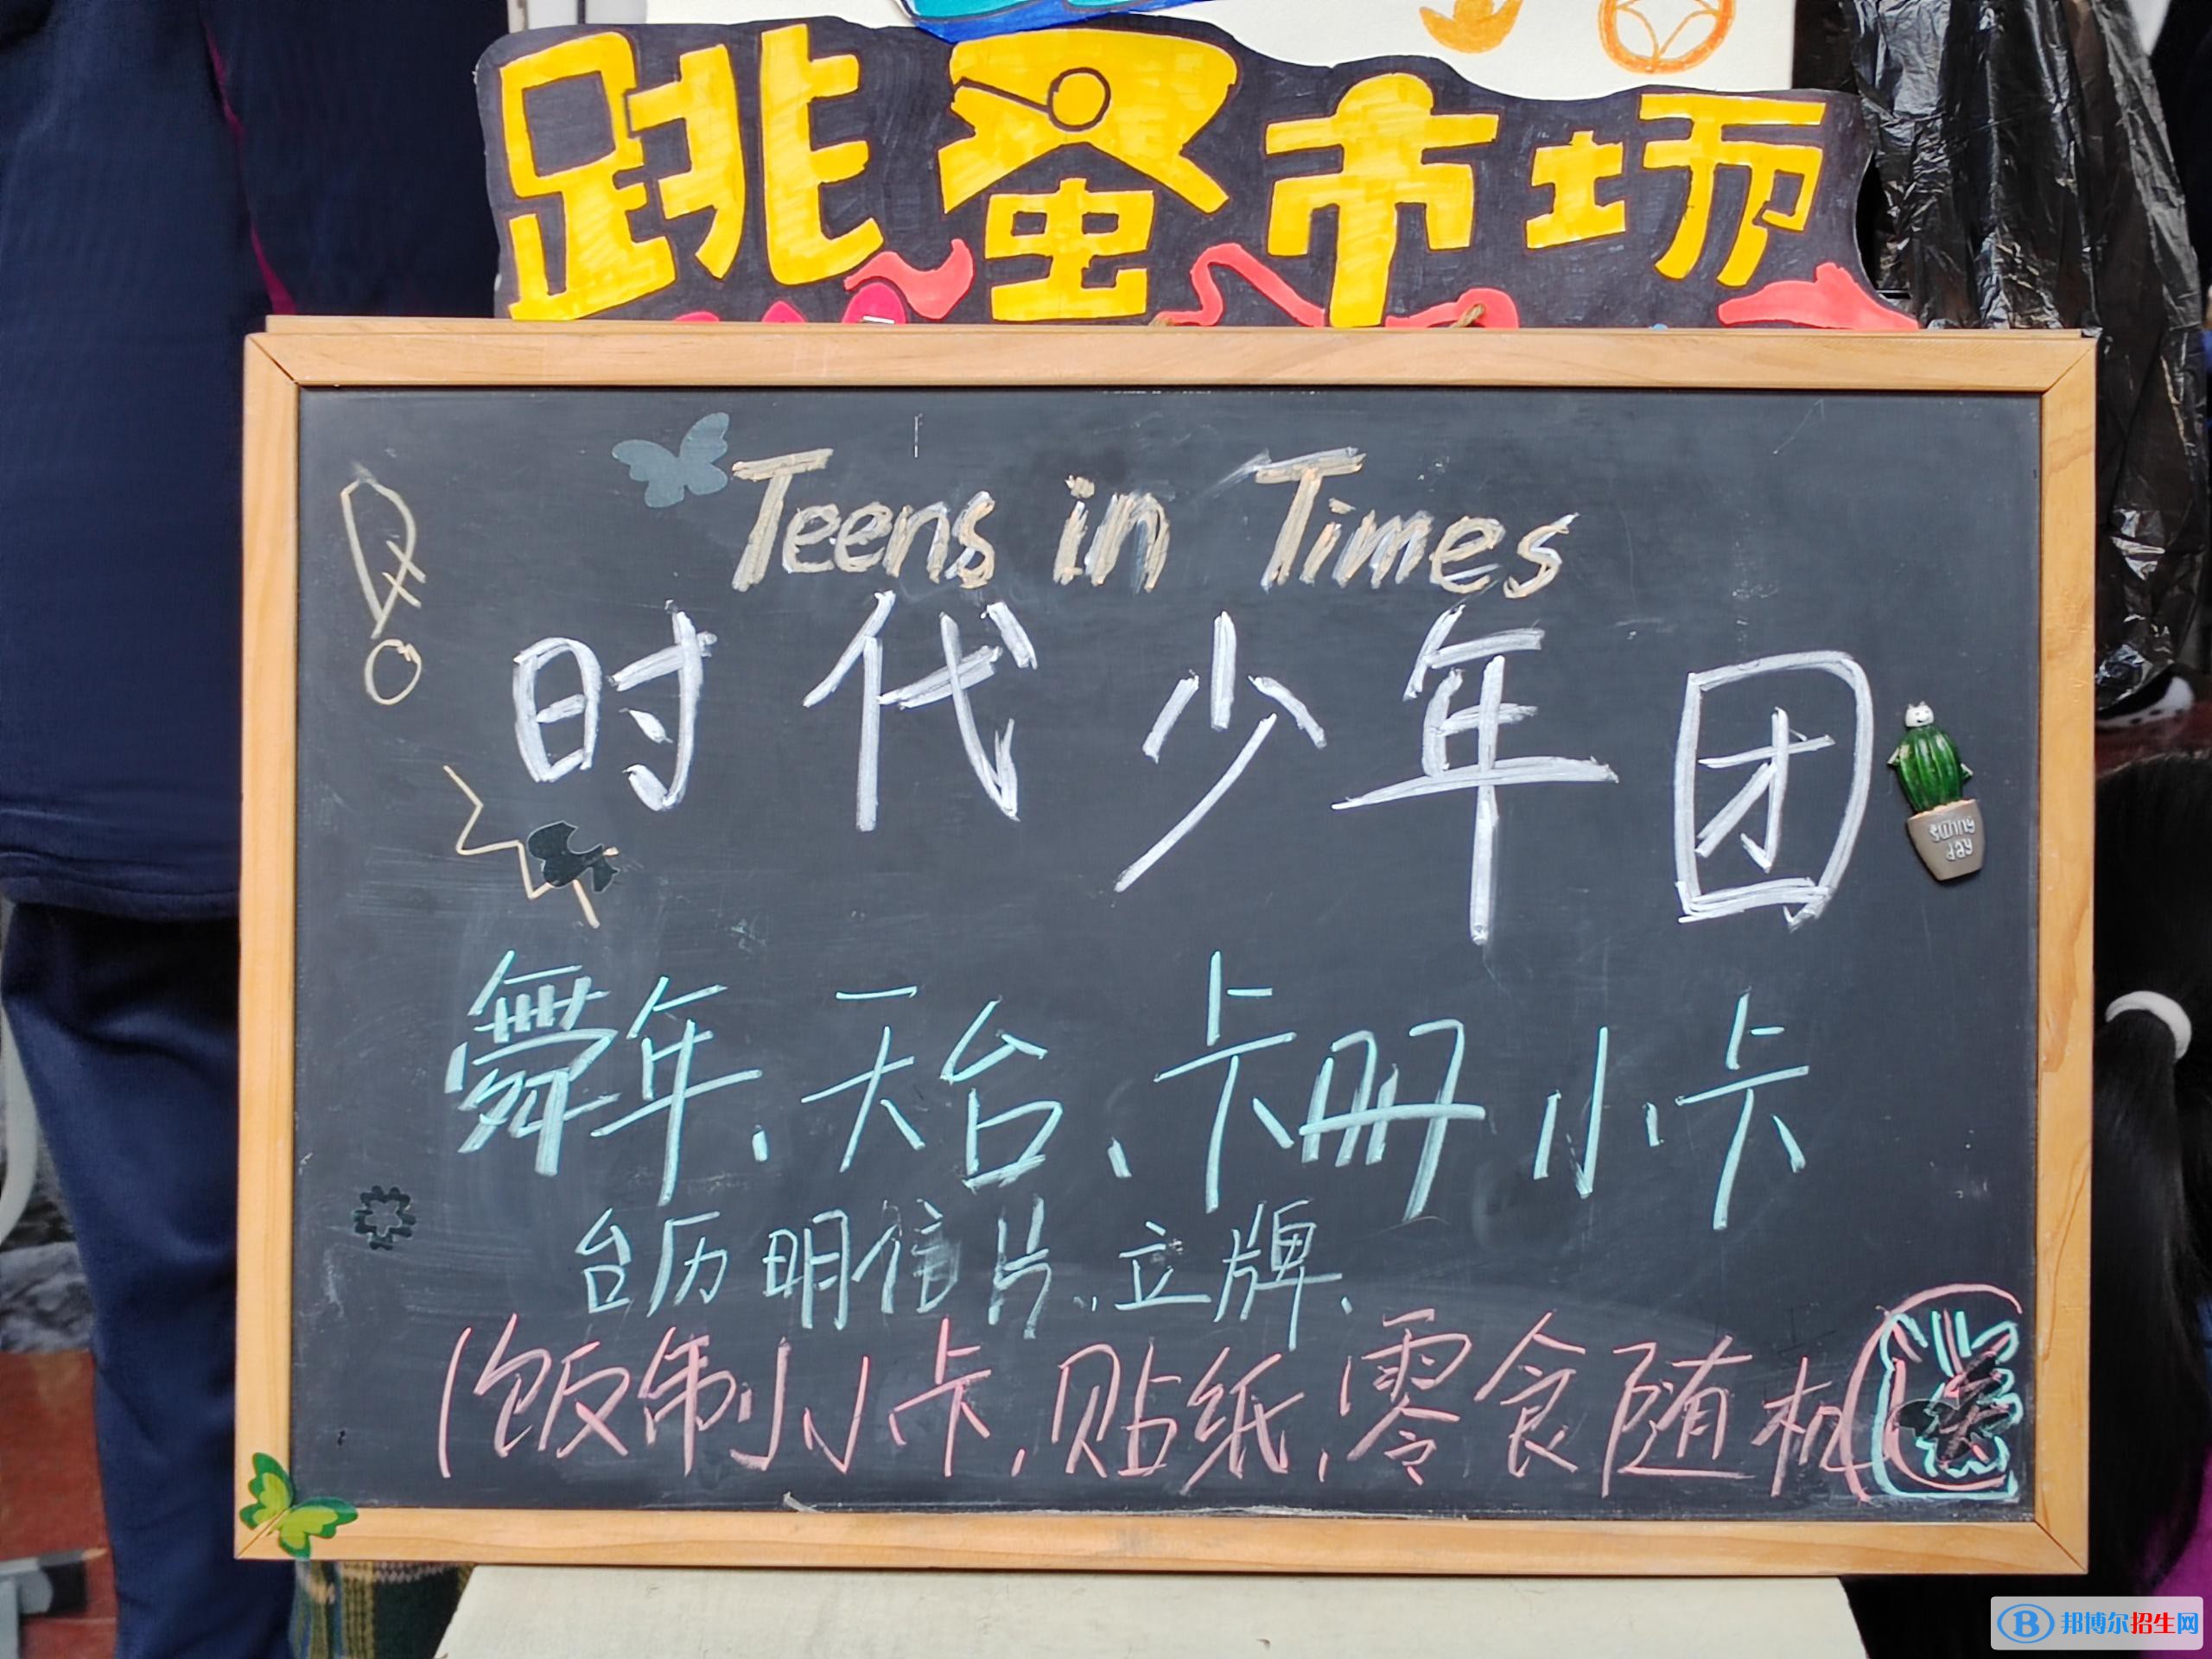 跳蚤市场
Teens in Times
时代少年团
sunny
day
舞年、天台、卡册小卡
台历明信片、立牌、
(饭制小卡,贴纸,零食随机
邦博尔招生网